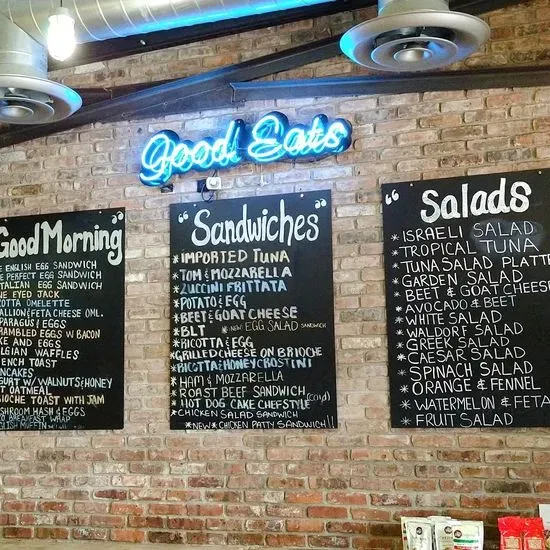 Good Eats
Good Morning"
ENGLISH EGG SANDWICH
PERFECT EGG SANDWICH
ITALIAN EGG SANDWICH
EYED JACK
OMELETTE
& FETA CHEESE OML.
& EGGS
EGGS W BACON
AND EGGS
WAFFLES
TOAST
W/ WALNUTS & HONEY
OATMEAL
TOAST WITH JAM
HASH & EGGS
BREAKFAST WRAP
MUFFIN
"Sandwiches"
* IMPORTED TUNA
* TOM & MOZZARELLA
* ZUCCINI FRITTATA
* POTATO & EGG
* BEET & GOAT CHEESE
* BLT * NEW EGG SALAD SANDWICH
* RICOTTA & EGG
* GRILLED CHEESE ON BRIOCHE
* RICOTTA & HONEY CROSTINI
* HAM & MOZZARELLA
* ROAST BEEF SANDWICH
* HOT DOG CAKE CHEFSTYLE
* CHICKEN SALAD SANDWICH
* NEW * CHICKEN PATTY SANDWICH!!
"Salads
* ISRAELI SALAD
* TROPICAL TUNA
* TUNA SALAD PLATTE
* GARDEN SALAD
* BEET & GOAT CHEESE
* AVOCADO & BEET
* WHITE SALAD
* WALDORF SALAD
* GREEK SALAD
* CAESAR SALAD
* SPINACH SALAD
* ORANGE & FENNEL
* WATERMELON & FETA
* FRUIT SALAD